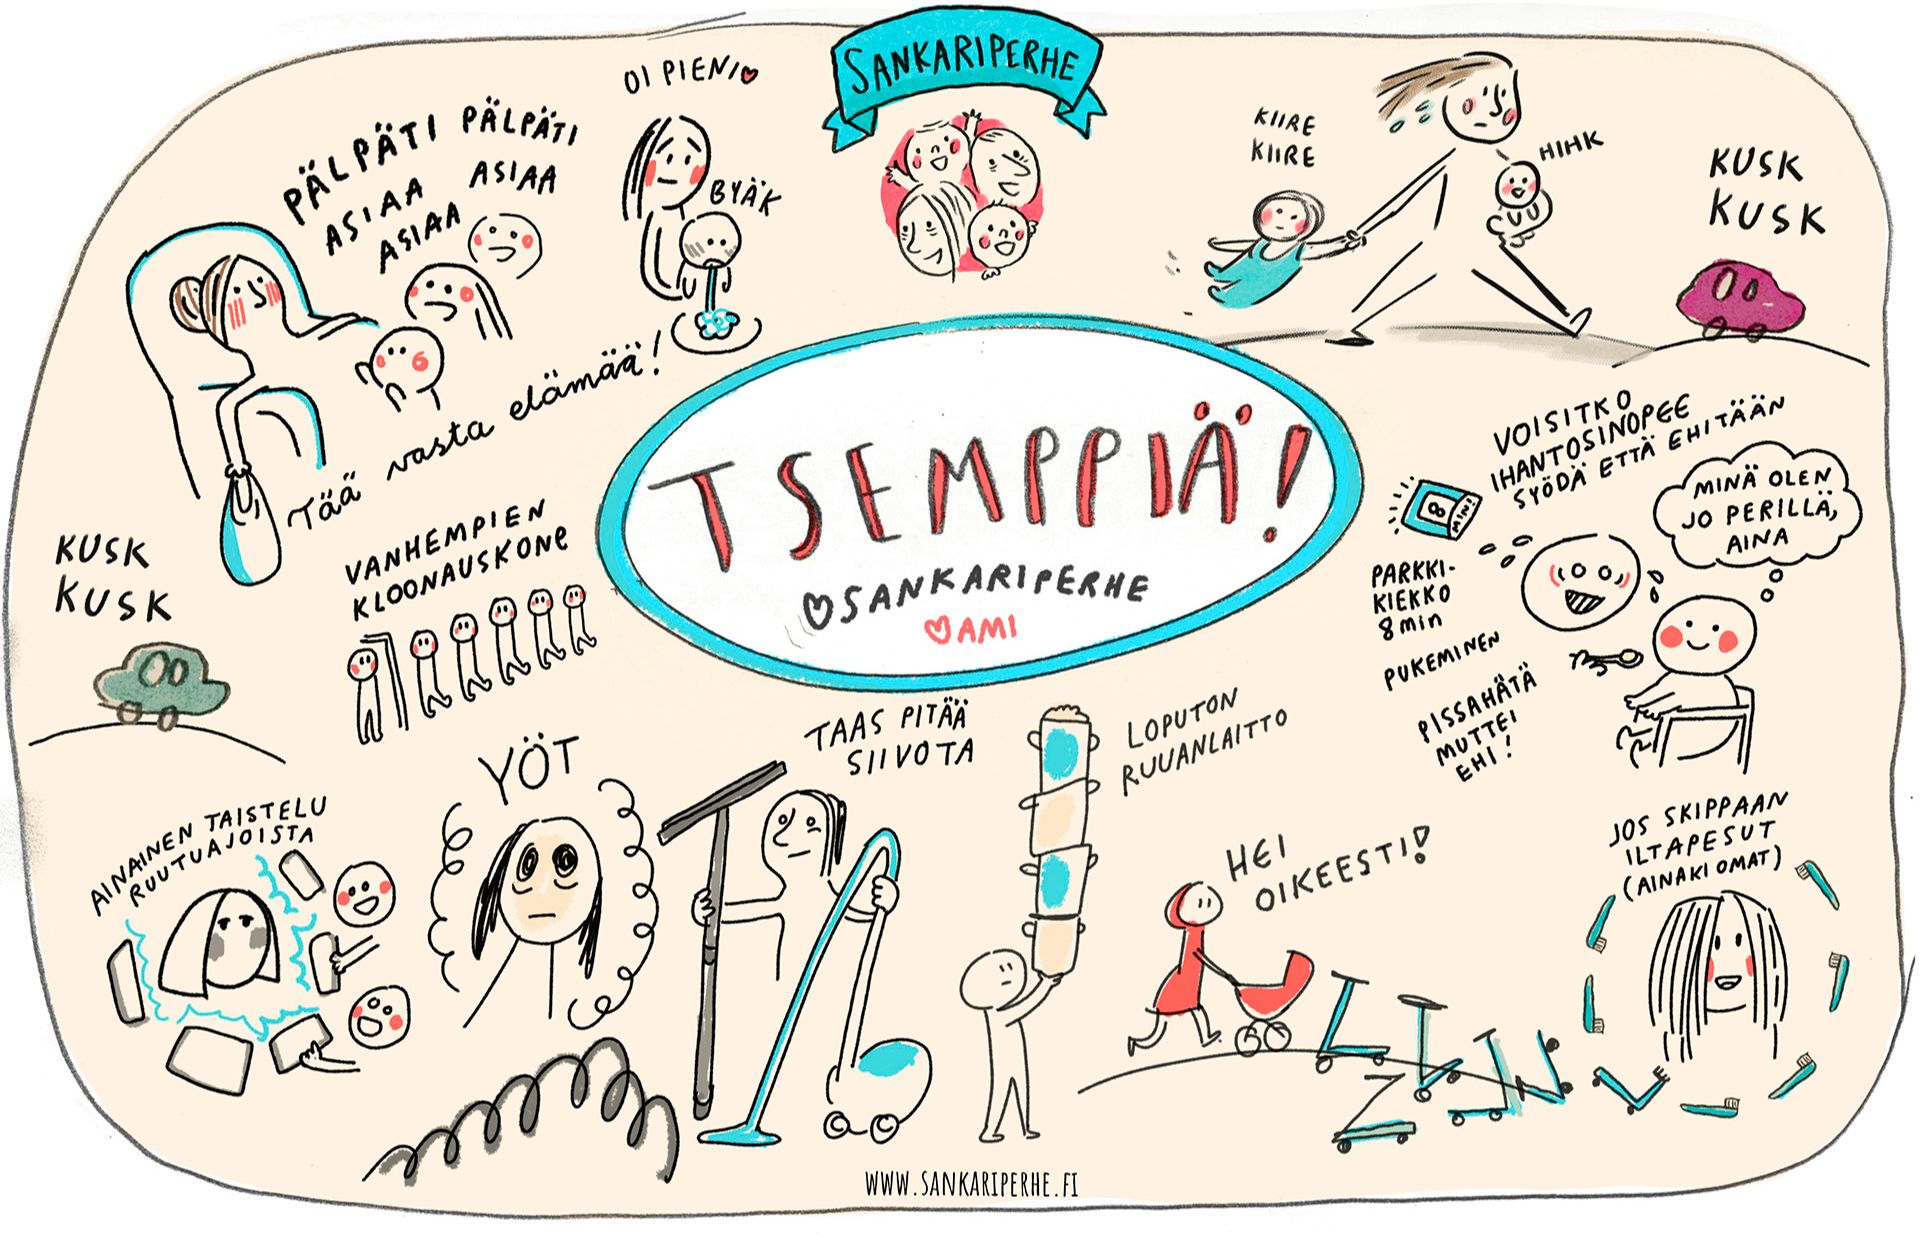 SANKARIPERHE
OI PIENI
BYÄK
PÄLPÄTI PÄLPÄTI
ASIAA
ASIAA
ASIAA
Tää vasta elämää!
KIIRE
KIIRE
HIHK
KUSK
KUSK
TSEMPPIÄ!
SANKARIPERHE
AMI
KUSK
KUSK
VANHEMPIEN
KLOONAUSKONE
VOISITKO
IHANTOSINOPEE
SYÖDÄ ETTÄ EHITÄÄN
8
MIN!
PARKKI-
KIEKKO
8min
PUKEMINEN
PISSAHÄTÄ
MUTTEI
EHI!
MINÄ OLEN
JO PERILLÄ,
AINA
AINAINEN TAISTELU
RUUTUAJOISTA
YÖT
TAAS PITÄÄ
SIIVOTA
LOPUTON
RUUANLAITTO
HEI
OIKEESTI!
JOS SKIPPAAN
ILTAPESUT
(AINAKI OMAT)
WWW.SANKARIPERHE.FI